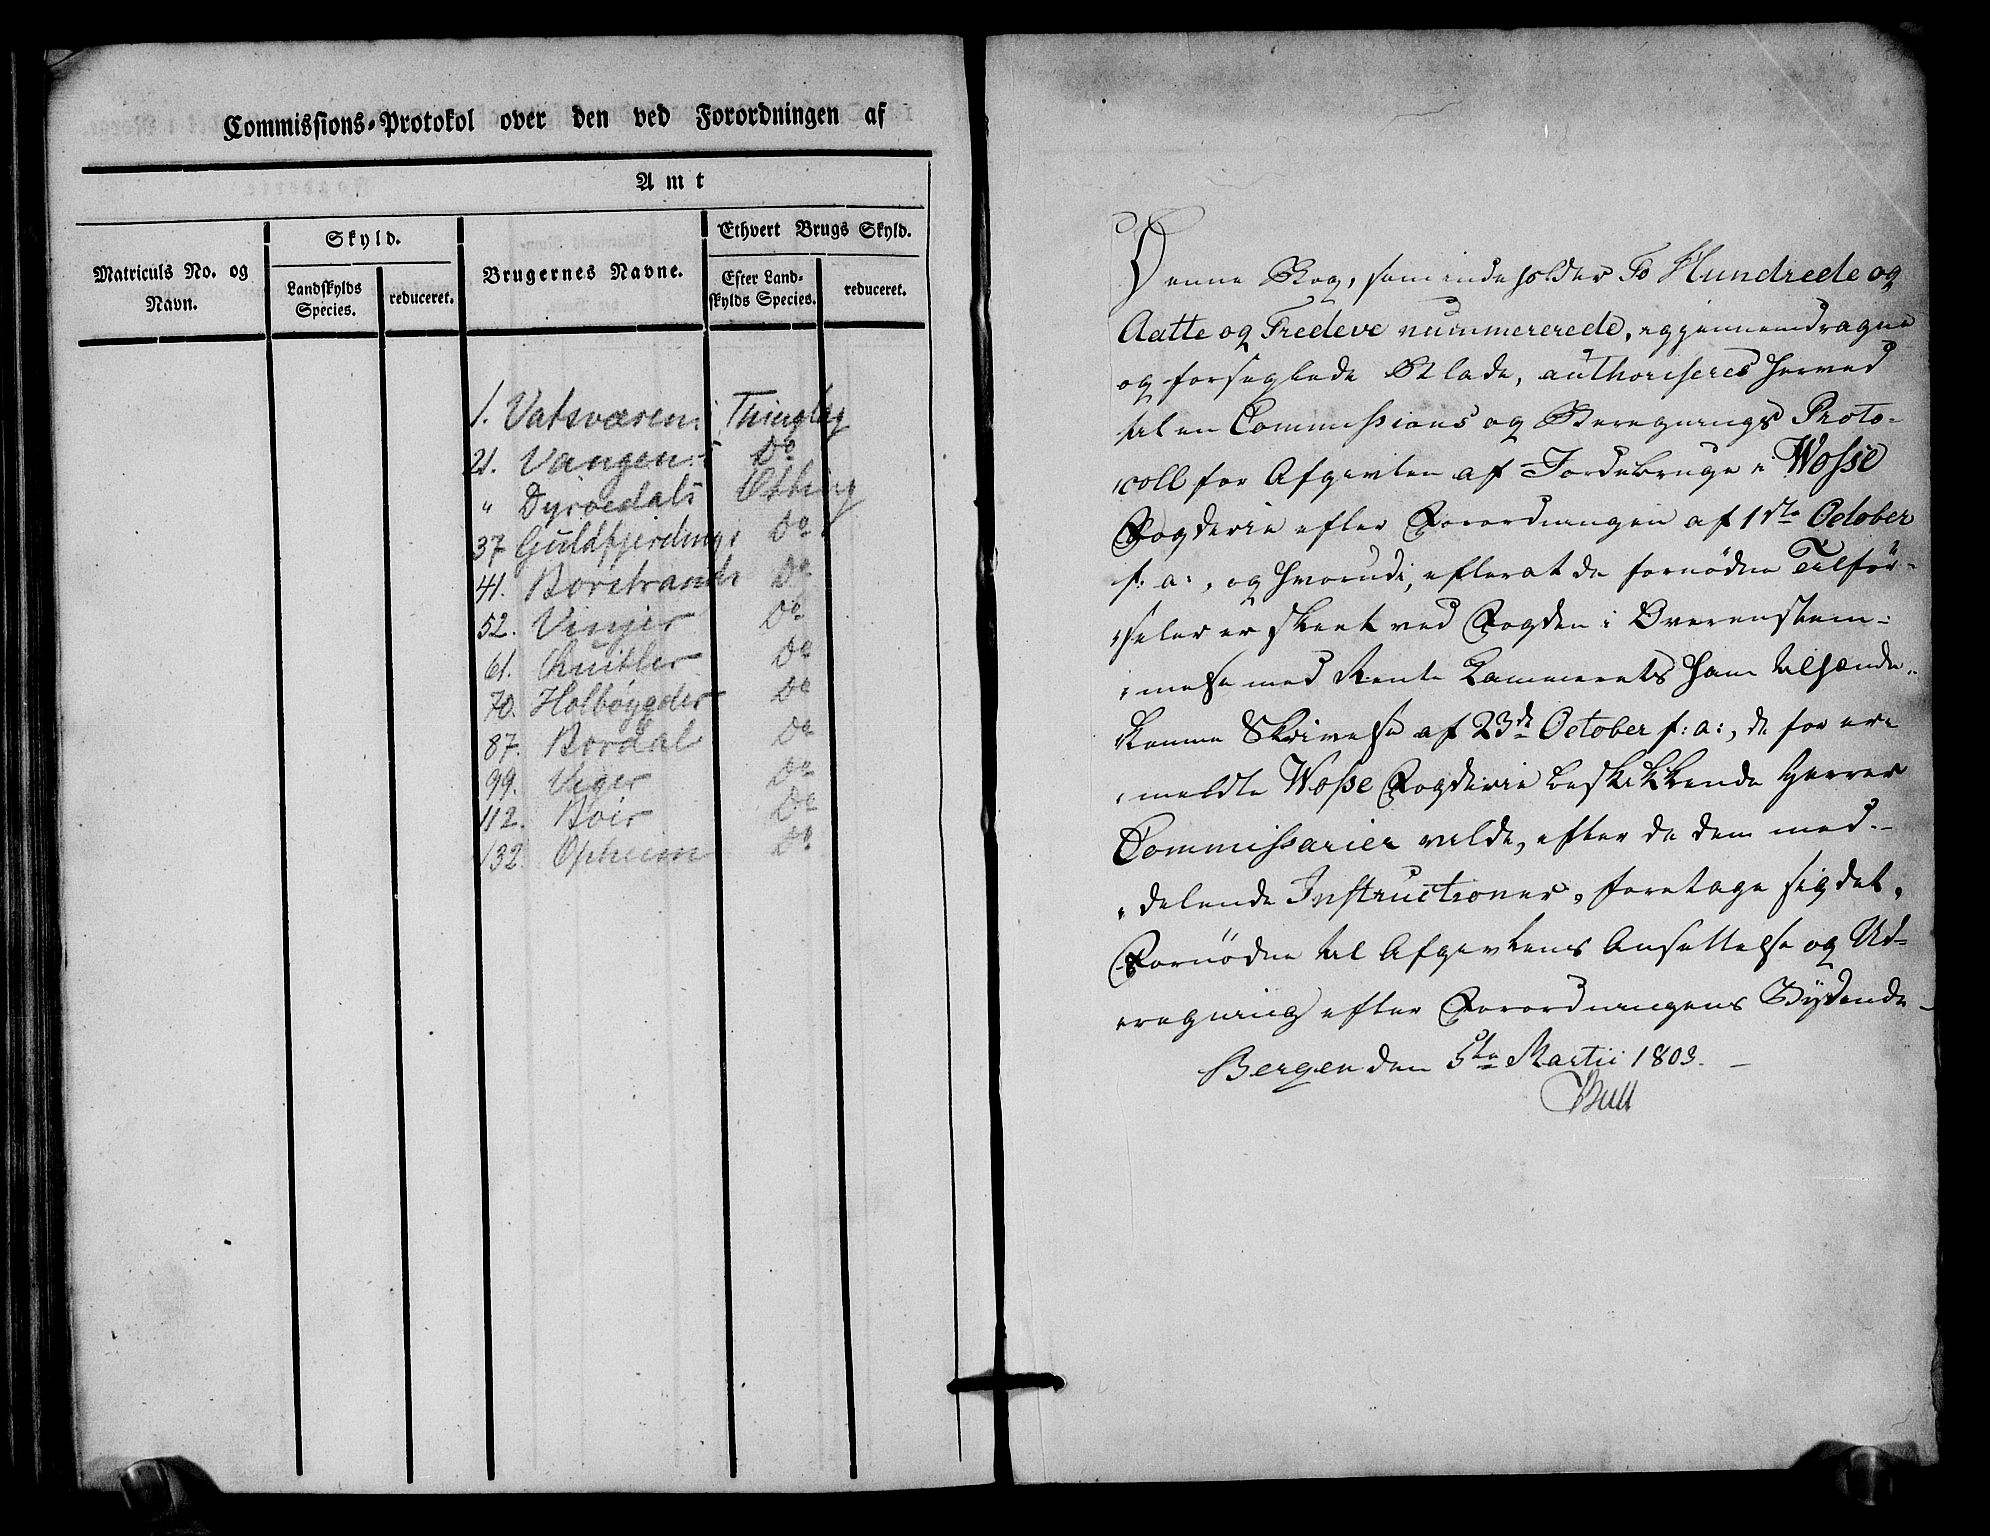 Commissions-Protokol over den ved Forordningen af
Amt
Matriculs No. og Navn.
Skyld.
Landskylds Species.
reduceret.
Brugernes Navne.
Ethvert Brugs Skyld.
Efter Land-
skylds Species.
reduceret.
1. Vatsværens Thinglag
21. Vangens Do
" Dyrvedals Otting
37 Guldfjerdings Do
41. Borstrands Do
52. Vinjer Do
61. Qvitler Do
70. Holbøygder Do
87. Bordal Do
99. Veger Do
112. Boer Do
132. Opheim Do
Denne Bog, som indeholder To Hundrede og
Aatte og Tredeve nummererede, igjennemdragne
og forseglede Blade, authoriseres herved
til en Commissions og Beregnings Proto-
coll for Afgivten af Jordebruge i Wosse
Fogderie efter Forordningen af 1ste October
f: a:, og hvorudi, efterat de fornødne Tilför-
seler er skeet ved Fogden i Overenstem-
melse med Rente Kammerets ham tilhænde-
komne Skrivelse af 23de October f: a:, de for er-
meldte Wosse Fogderie beskikkende Herrer
Commissarier vilde, efter de dem med-
delende Instructioner, foretage sig det
Fornödne til Afgivtens Ansettelse og Ud-
regning efter Forordningens Bydende
Bergen den 5te Martii 1803.
Bull